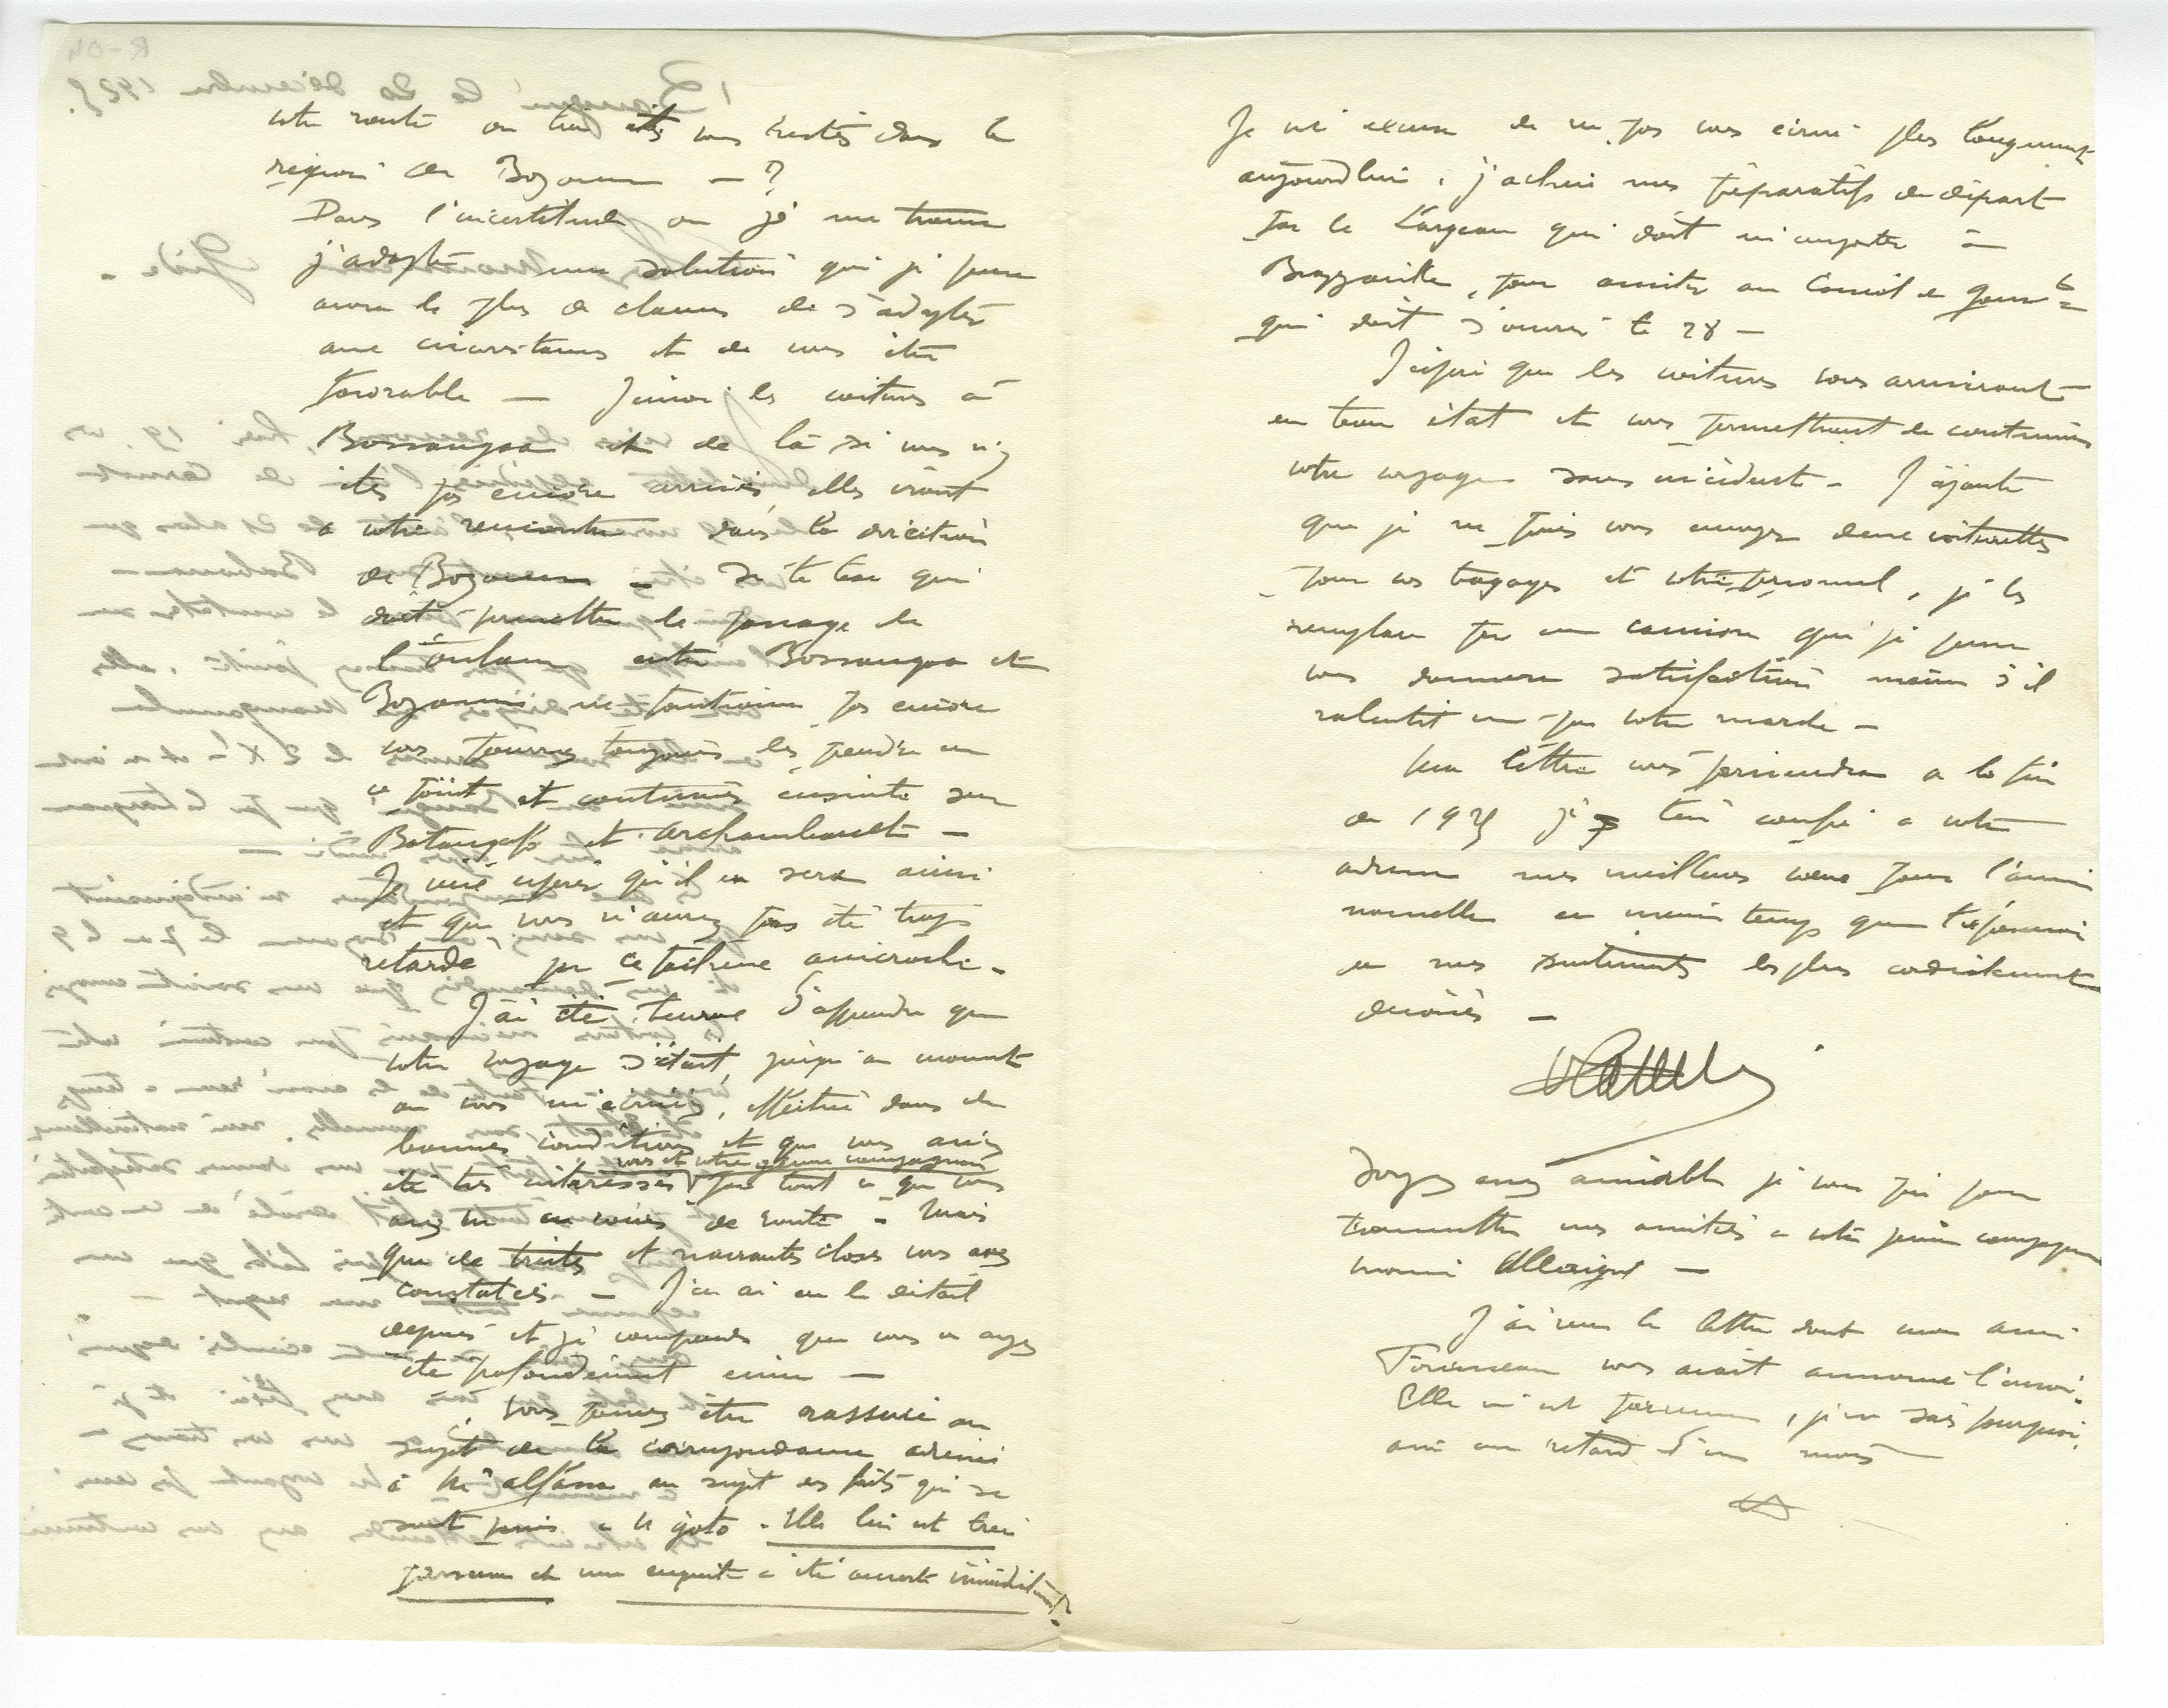 votre route ou bien êtes vous restés dans la
région de Bozoum — ?
Dans l'incertitude où je me trouve
j'adopte une solution qui je pense
aura le plus de chances de s'adapter
aux circonstances et de vous être
favorable — J'envoie les voitures à
Bossangoa et de là si vous n'y
êtes pas encore arrivés elles iront
a votre rencontre dans la direction
de Bozoum — Si le bac qui
doit permettre le passage de
l'Ouham entre Bossangoa et
Bozoum ne fonctionne pas encore
vous pourrez toujours les prendre en
ce point et continuer ensuite sur
Batangafo et Archambault —
Je veux espérer qu'il en sera ainsi
et que vous n'aurez pas été trop
retardé par ce fâcheux anicroche.
J'ai été heureux d'apprendre que
votre voyage s'était, jusqu'au moment
où vous m'écriviez, effectué dans de
bonnes conditions et que vous aviez
vous et votre jeune compagnon
été très intéressés par tout ce que vous
avez vu en cours de route — Mais
que de tristes et navrantes choses vous avez
constatées — J'en ai eu le détail
depuis et je comprends que vous en ayez
été profondément ému —
Vous pouvez être rassuré au
sujet de la correspondance adressée
à Mr Alfassa au sujet des faits qui se
sont passés a N'goto. Elle lui est bien
parvenue et une enquête a été ouverte immédiatement.
Je m'excuse de ne pas vous écrire plus longuement
aujourd'hui, j'achève mes préparatifs de départ
par le Largeau qui doit m'emporter à
Brazzaville, pour assister au Conseil de Gouvt
qui doit s'ouvrir le 28 —
J'espère que les voitures vous arriveront
en bon état et vous permettront de continuer
votre voyage sans incident — J'ajoute
que je ne puis vous envoyer deux voiturettes
pour vos bagages et votre personnel, je les
remplace par un camion qui je pense
vous donnera satisfaction même s'il
ralentit un peu votre marche —
Ma lettre vous parviendra a la fin
de 1925 je bien confie a votre
adresse mes meilleurs voeux pour l'année
nouvelle en même temps que l'expression
de mes sentiments les plus cordialement
dévoués —
Soyez assez aimable je vous prie pour
transmettre mes amitiés a votre jeune compagnon
monsieur Allégret —
J'ai reçu la lettre dont mon ami
vous avait annoncé l'envoi.
Elle m'est parvenue, je ne sais pourquoi,
avec un retard d'un mois